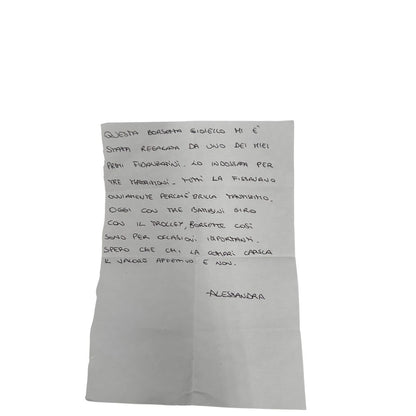 QUESTA BORSETTA GIOIELLO MI È
STATA REGALATA DA UNO DEI MIEI
PRIMI FIDANZATINI. LO INDOSSATA PER
TRE MATRIMONI. TUTTI LA FISSAVANO
OVVIAMENTE PERCHÉ BRILLA TANTISSIMO.
OGGI CON TRE BAMBINI GIRO
CON IL TROLLEY, BORSETTE COSÌ
SONO PER OCCASIONI IMPORTANTI.
SPERO CHE CHI LA COMPRI CAPISCA
IL VALORE AFFETTIVO E NON.
-ALESSANDRA